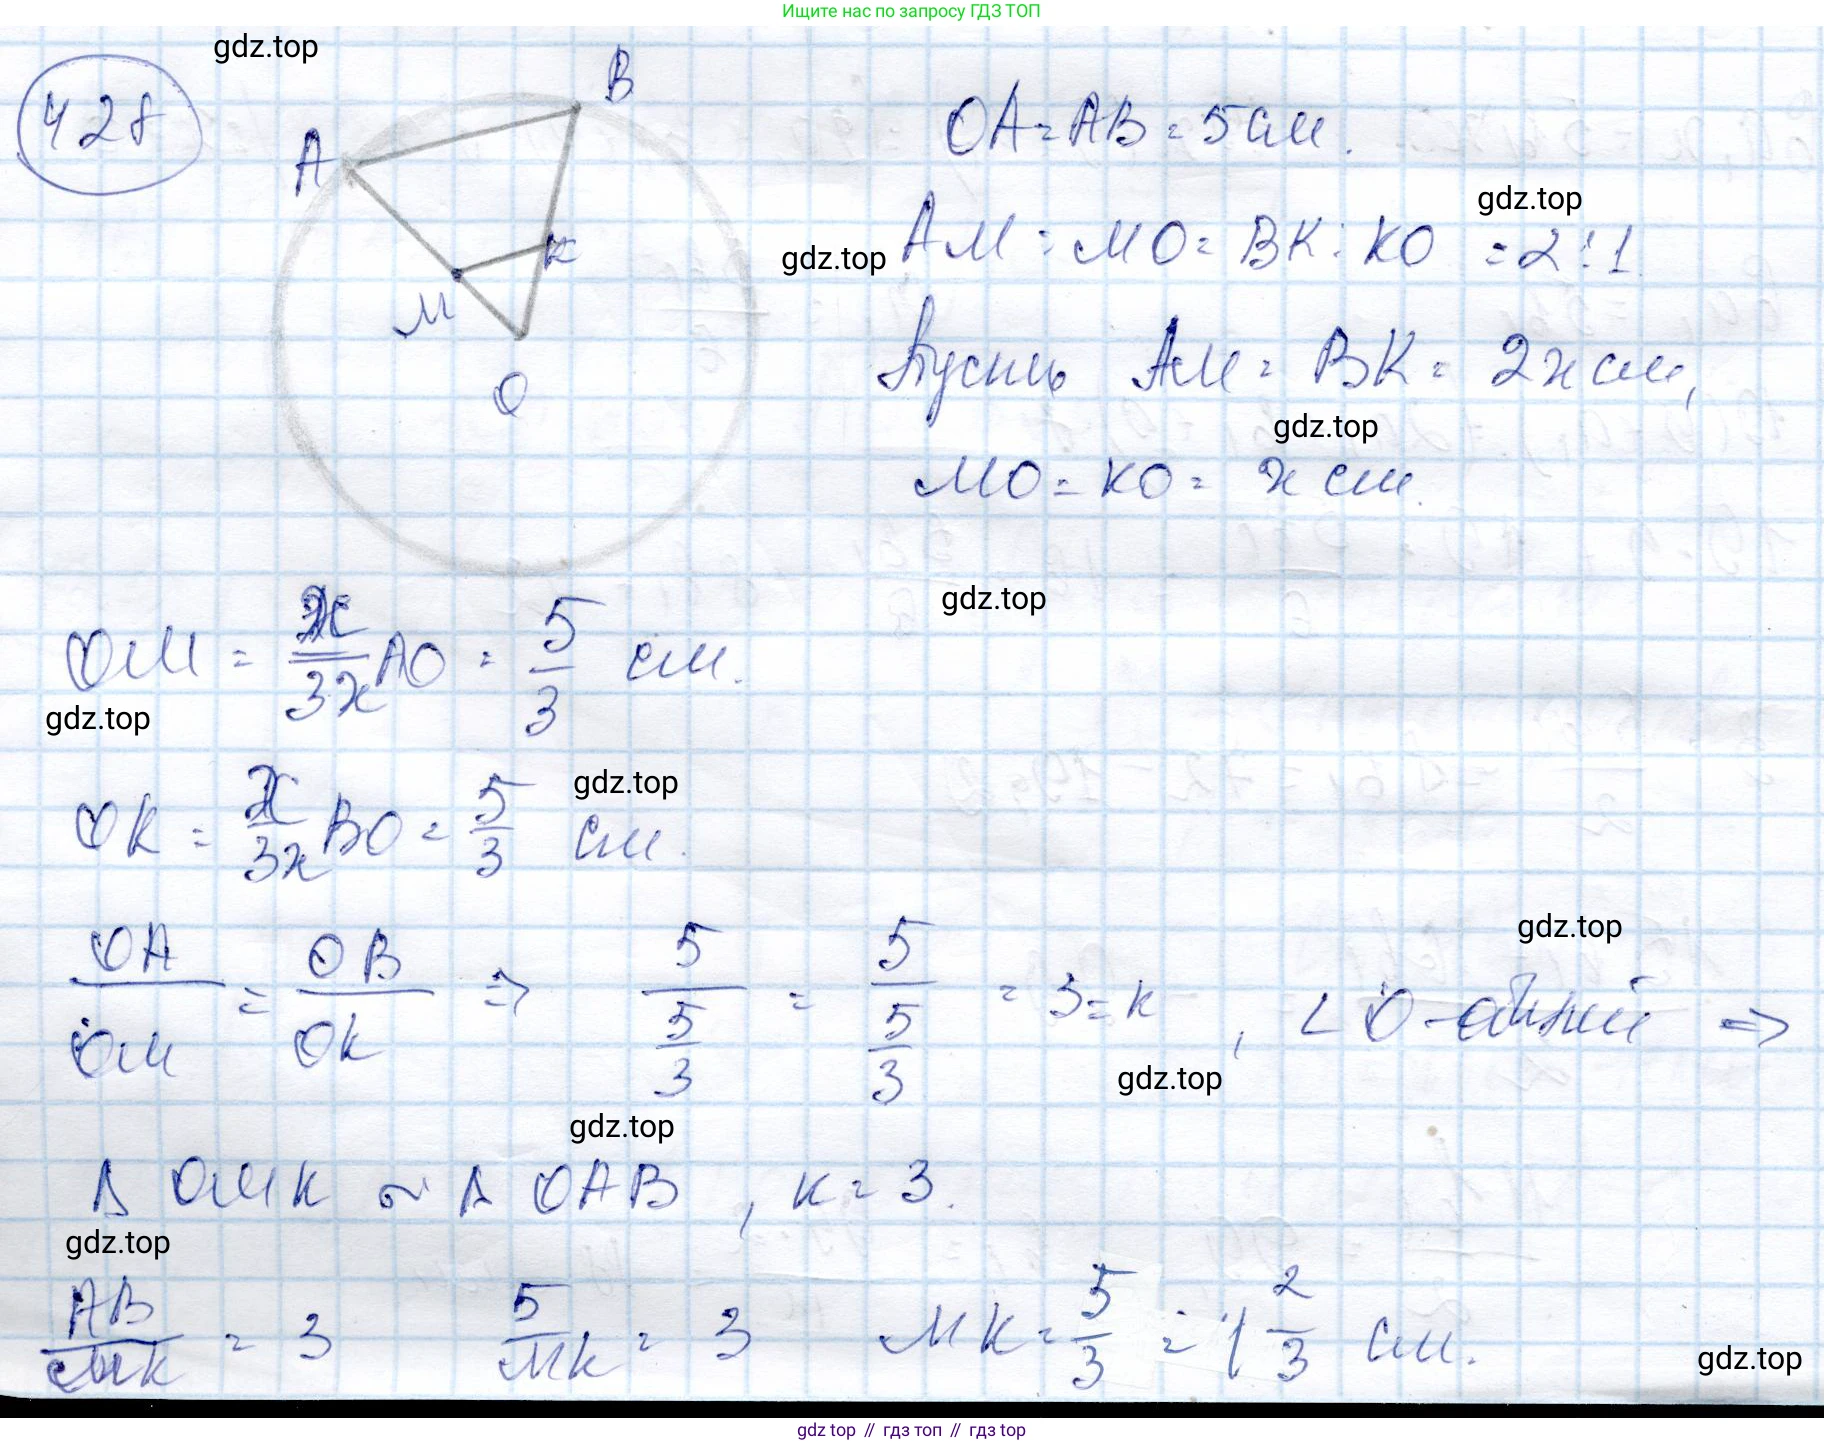 Ищите нас по запросу ГДЗ ТОП
gdz.top
428
A
B
M
K
O
OA = AB = 5 см.
gdz.top
AM : MO = BK : KO = 2 : 1
gdz.top
Пусть AM = BK = 2x см,
gdz.top
MO = KO = x см.
gdz.top
OM = x/3x AO = 5/3 см.
gdz.top
OK = x/3x BO = 5/3 см.
gdz.top
OA/OM = OB/OK ⇒ 5/(5/3) = 5/(5/3) = 3 = k, ∠O - общий ⇒
gdz.top
gdz.top
gdz.top
Δ OMK ∾ Δ OAB, k = 3.
gdz.top
AB/MK = 3 5/MK = 3 MK = 5/3 = 1 2/3 см.
gdz.top
gdz top // гдз топ // гдз top